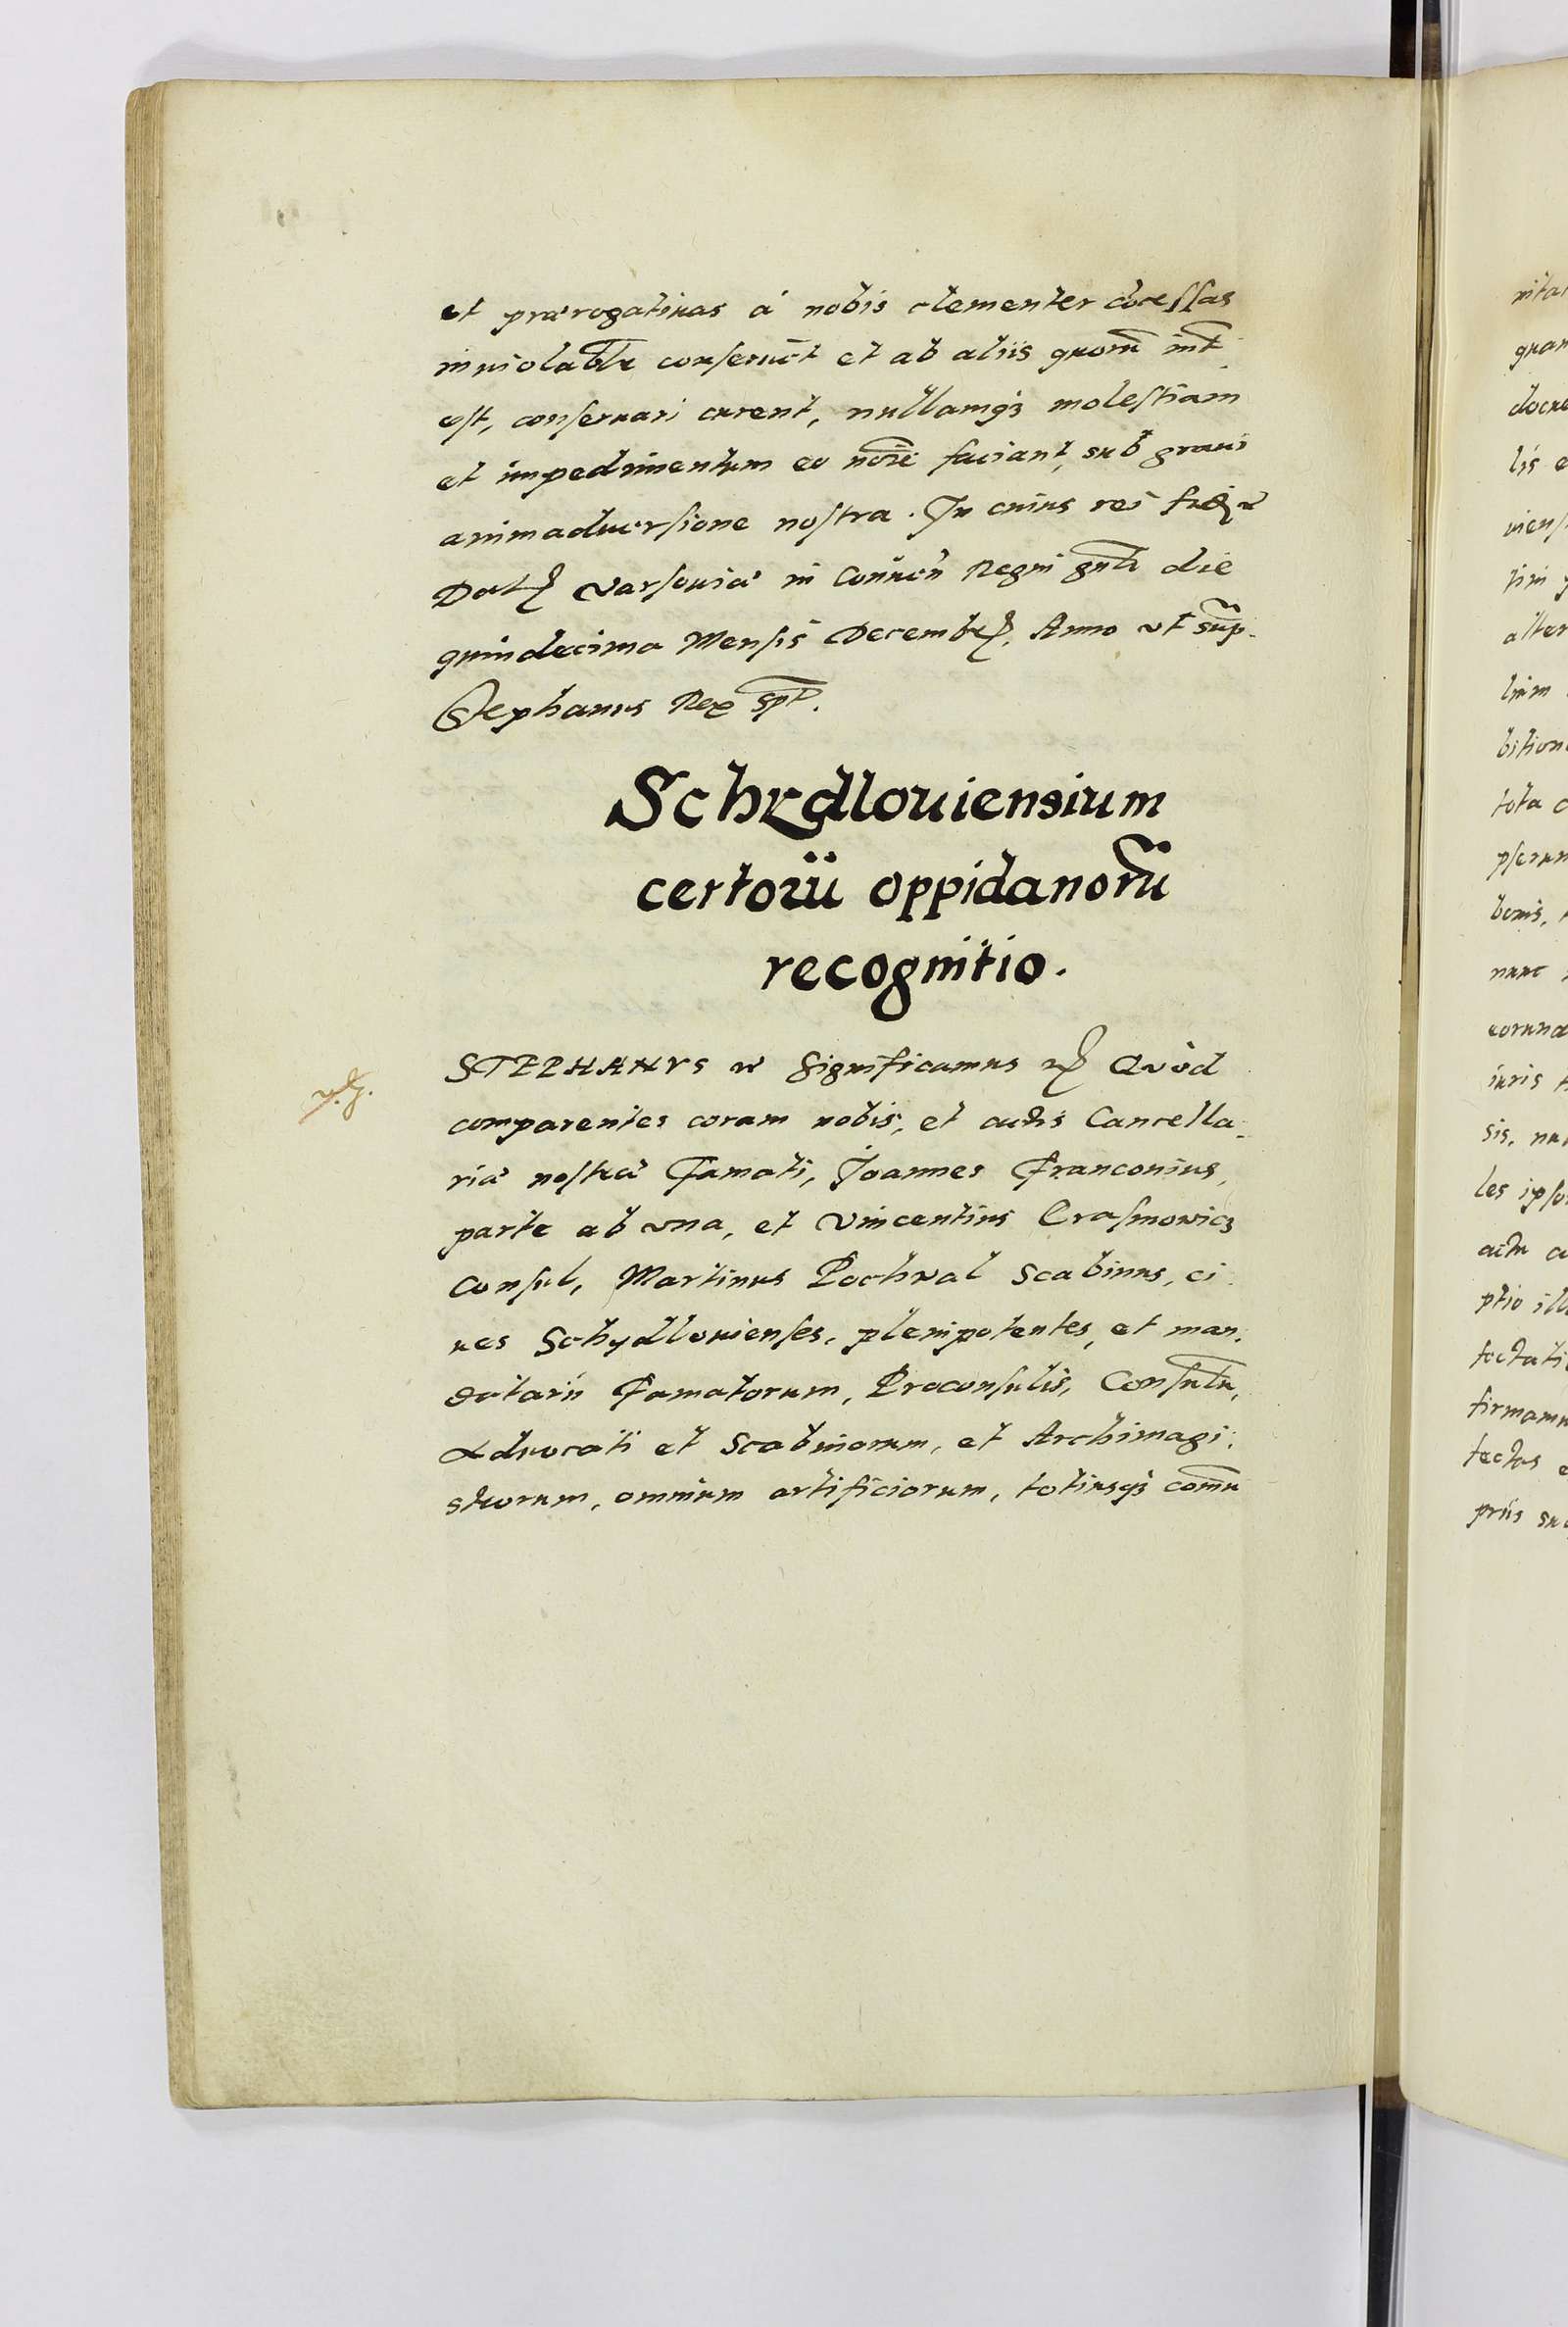 et prærogatiuas á nobis clementer côcessas
inuiolablr conseruēt et ab aliis quorū int
est, conseruari curent, nullamqȝ molestiam
et impedimentum eo noīe faciant, sub graui
animaduersione nostra. In cuius rei fidē
Datꝭ Varsouiæ in Conuēn Regni gnli die
quindecima Mensis Decembrꝭ. Anno vt supˉ.
Stephanus Rex spt.
Schydlouiensium
certorū oppidanorū
recognitio.
STEPHANVS Significamus Quòd
comparentes coram nobis, et actis Cancella-
riæ nostræ Famati, Joannes Franconius,
parte ab vna, et Vincentius Erasmowicz
Consul, Martinus Pochwal Scabinus, ci
ues Schydlouienses, plenipotentes, et man-
datarii Famatorum, Proconsulis, Consulū,
Aduocati et Scabinorum, et Archimagi-
strorum, omnium artificiorum, totiusqȝ comū